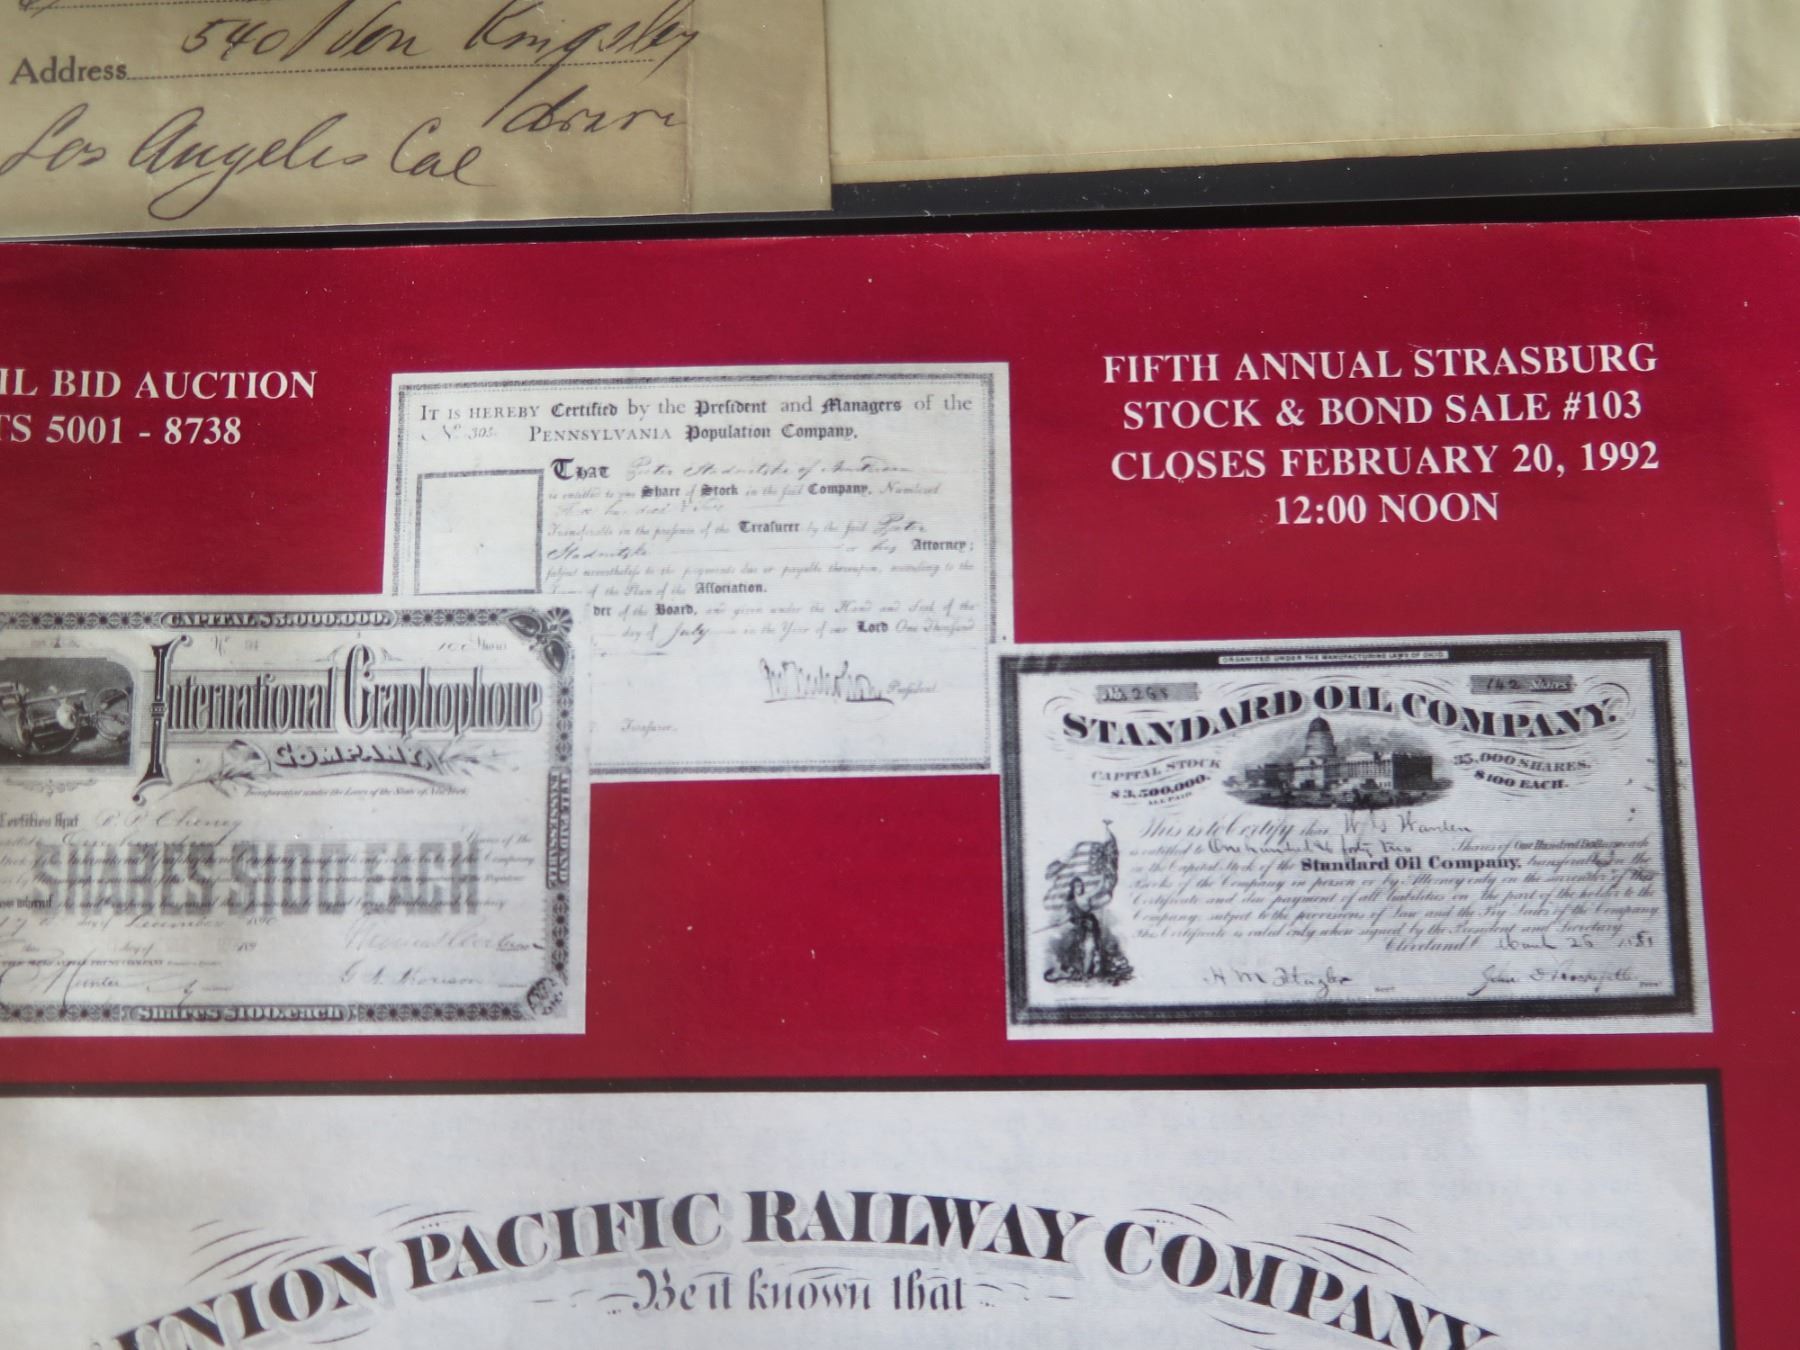 540 Von Kingsley
Address
drive
Los Angeles Cal
IL BID AUCTION
TS 5001 - 8738
FIFTH ANNUAL STRASBURG
STOCK & BOND SALE #103
CLOSES FEBRUARY 20, 1992
12:00 NOON
IT IS HEREBY Certified by the President and Managers of the
No. 305. PENNSYLVANIA Population Company,
THAT
is entitled to one Share of Stock in the said Company, Numbered
Transferable in the presence of the Treasurer by the said Pieter
Stadnitske or his Attorney;
of the Plan of the Association.
der of the Board, and given under the Hand and Seal of the
day of July in the Year of our Lord One Thousand
President
Treasurer
CAPITAL $3,000,000.
No 100 Shares
International Graphophone
COMPANY,
Incorporated under the Laws of the State of New York
Certifies that R. P. Cheney
SHARES $100 EACH
day of December 1890
Shares $100. each
FULL PAID AND
ORGANIZED UNDER THE MANUFACTURING LAWS OF OHIO.
No. 268 142 Shares
STANDARD OIL COMPANY.
CAPITAL STOCK
$3,500,000.
ALL PAID
35,000 SHARES.
$100 EACH.
This is to Certify that W. G. Warden
is entitled to One hundred & forty two Shares of One Hundred Dollars each
in the Capital Stock of the Standard Oil Company, transferable on the
Books of the Company in person or by Attorney only on the surrender of this
Certificate and due payment of all liabilities on the part of the holder to the
Company, subject to the provisions of Law and the By Laws of the Company
This Certificate is valid only when signed by the President and Secretary
Cleveland O. March 26
H M Flagler Secy
John D Rockefeller Prest
UNION PACIFIC RAILWAY COMPANY
Be it known that